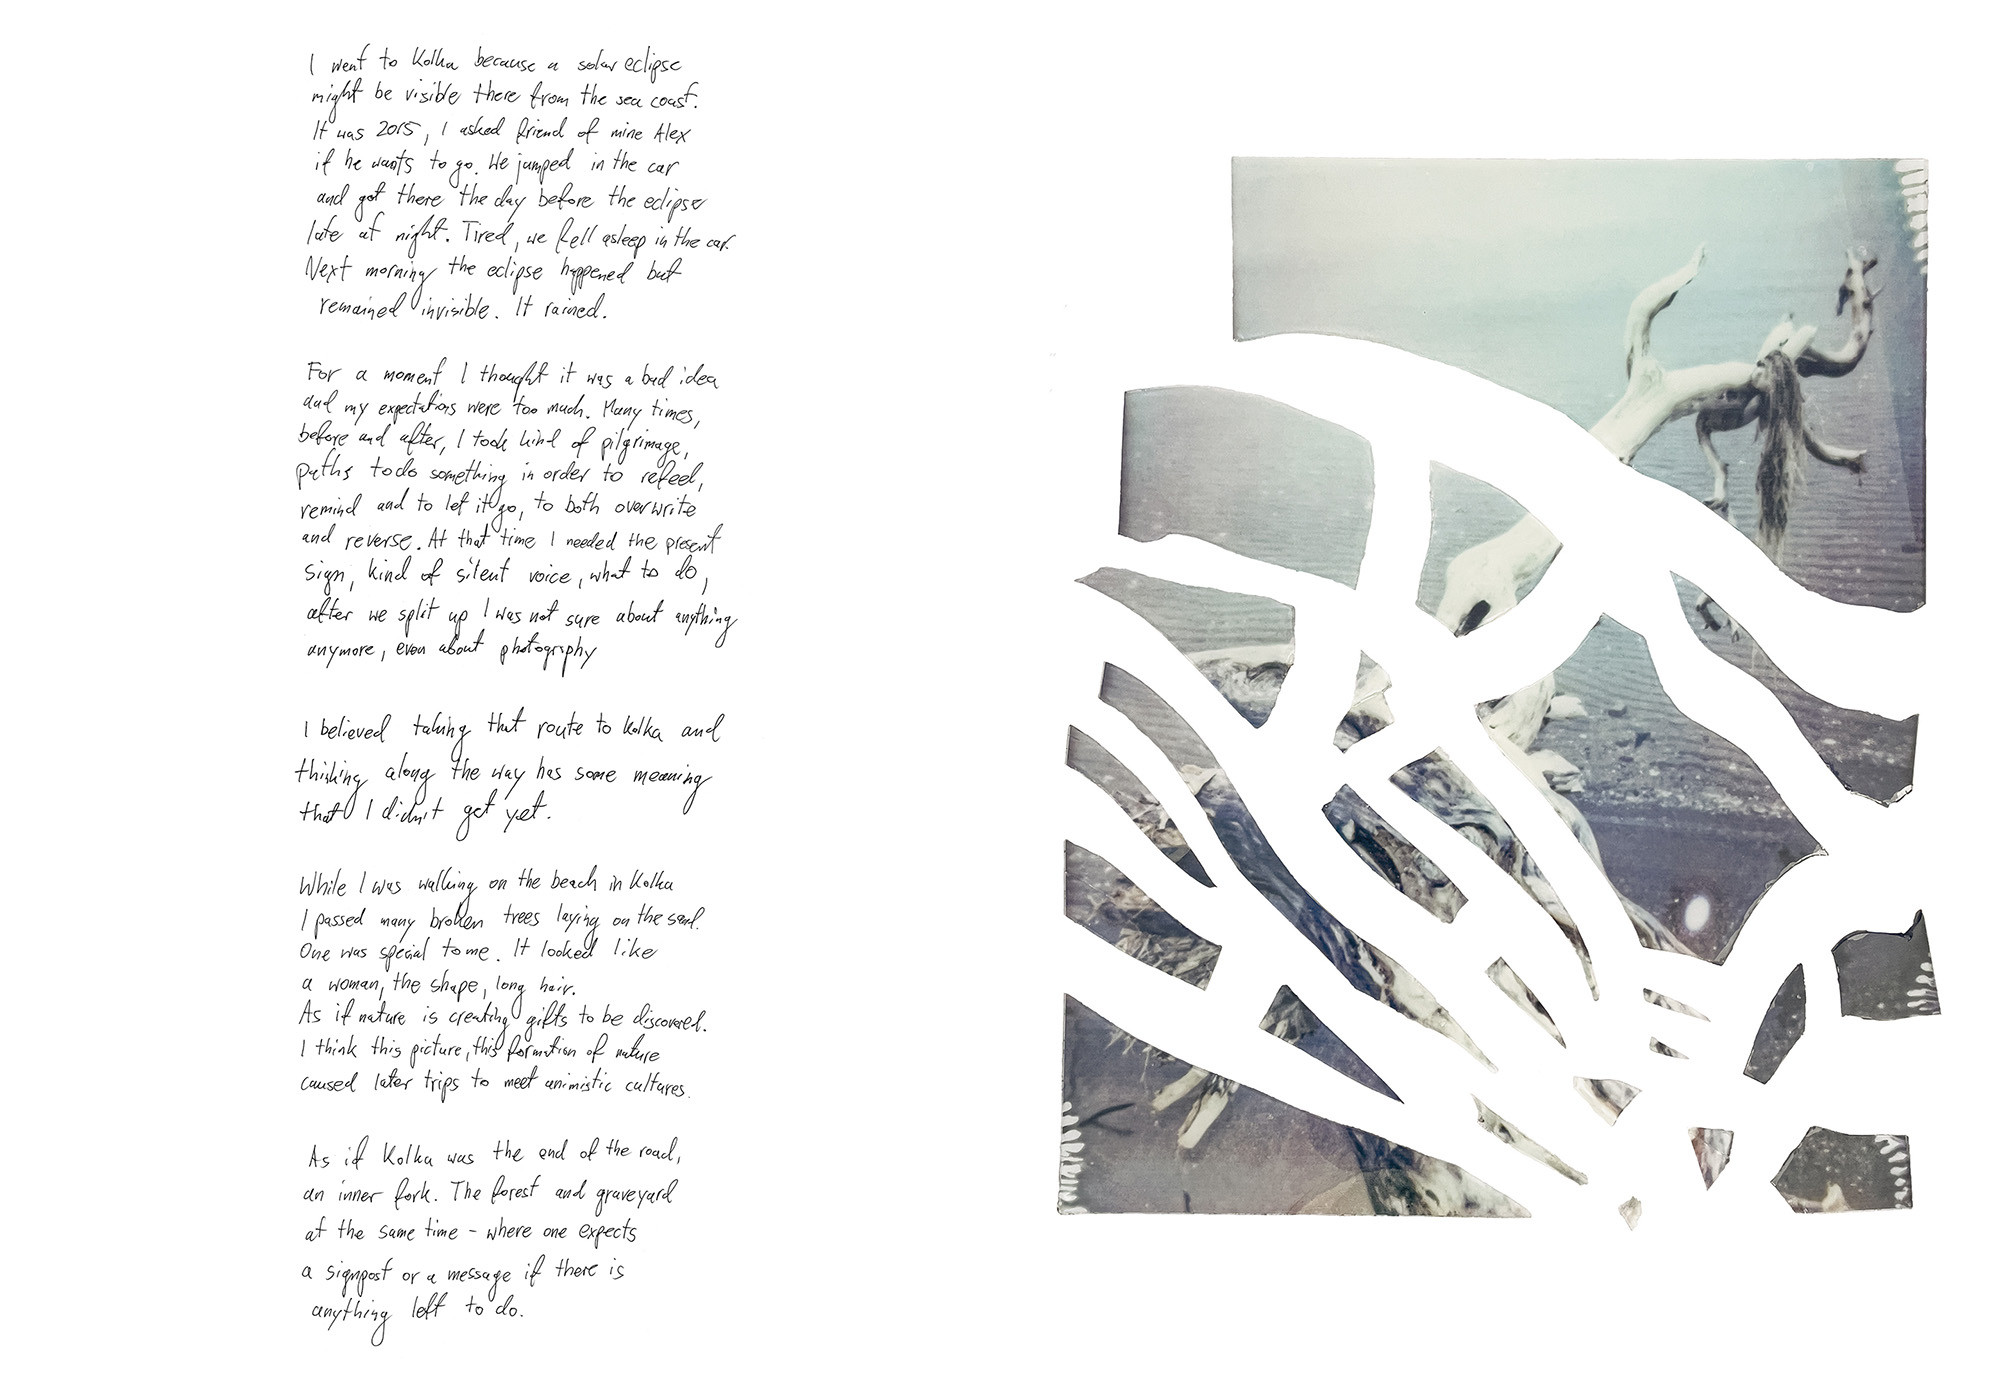 I went to Kolka because a solar eclipse
might be visible there from the sea coast.
It was 2015, I asked friend of mine Alex
if he wants to go. We jumped in the car
and got there the day before the eclipse
late at night. Tired, we fell asleep in the car.
Next morning the eclipse happened but
remained invisible. It rained.
For a moment I thought it was a bad idea
and my expectations were too much. Many times,
before and after, I took kind of pilgrimage,
paths to do something in order to refeel,
remind and to let it go, to both overwrite
and reverse. At that time I needed the present
sign, kind of silent voice, what to do,
after we split up I was not sure about anything
anymore, even about photography
I believed taking that route to Kolka and
thinking along the way has some meaning
that I didn't get yet.
While I was walking on the beach in Kolka
I passed many broken trees laying on the sand.
One was special to me. It looked like
a woman, the shape, long hair.
As if nature is creating gifts to be discovered.
I think this picture, this formation of nature
caused later trips to meet animistic cultures.
As if Kolka was the end of the road,
an inner fork. The forest and graveyard
at the same time - where one expects
a signpost or a message if there is
anything left to do.